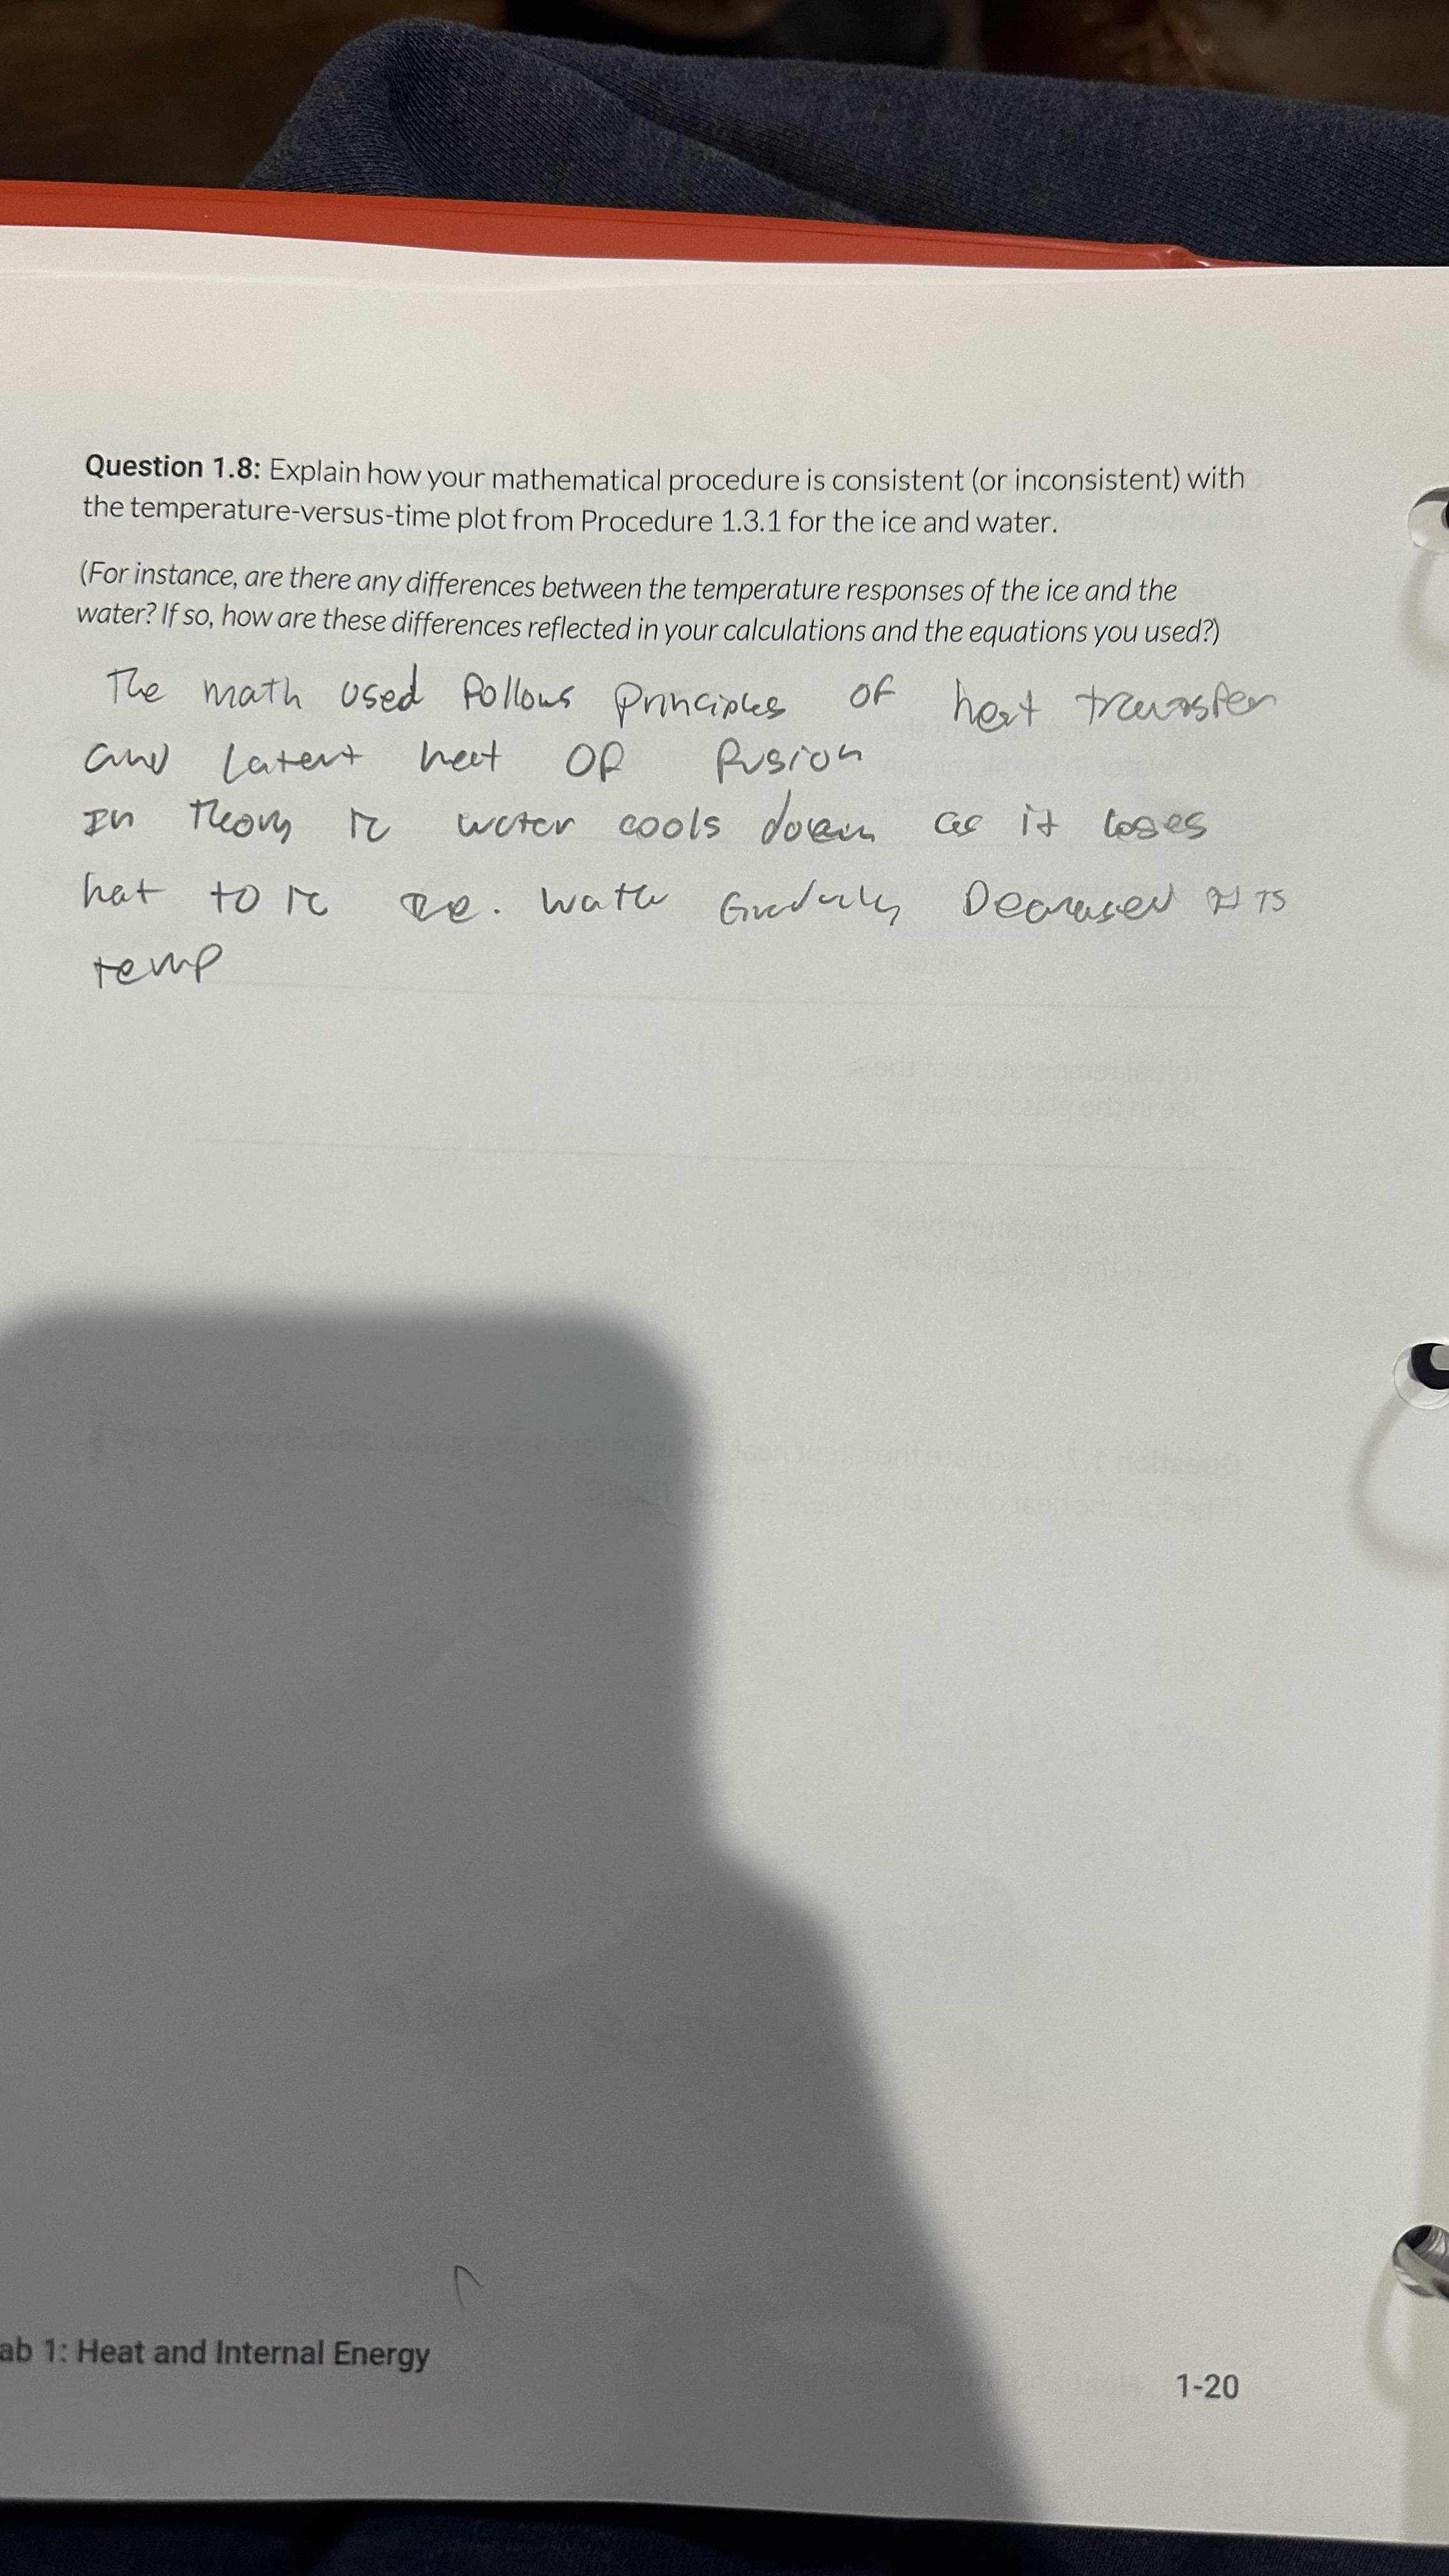 Question 1.8: Explain how your mathematical procedure is consistent (or inconsistent) with
the temperature-versus-time plot from Procedure 1.3.1 for the ice and water.
(For instance, are there any differences between the temperature responses of the ice and the
water? If so, how are these differences reflected in your calculations and the equations you used?)
The math used follows principles of heat transfer
and latent heat of fusion
In theory water cools down as it loses
heat to ice. water Gradually Decreased its
temp
ab 1: Heat and Internal Energy
1-20